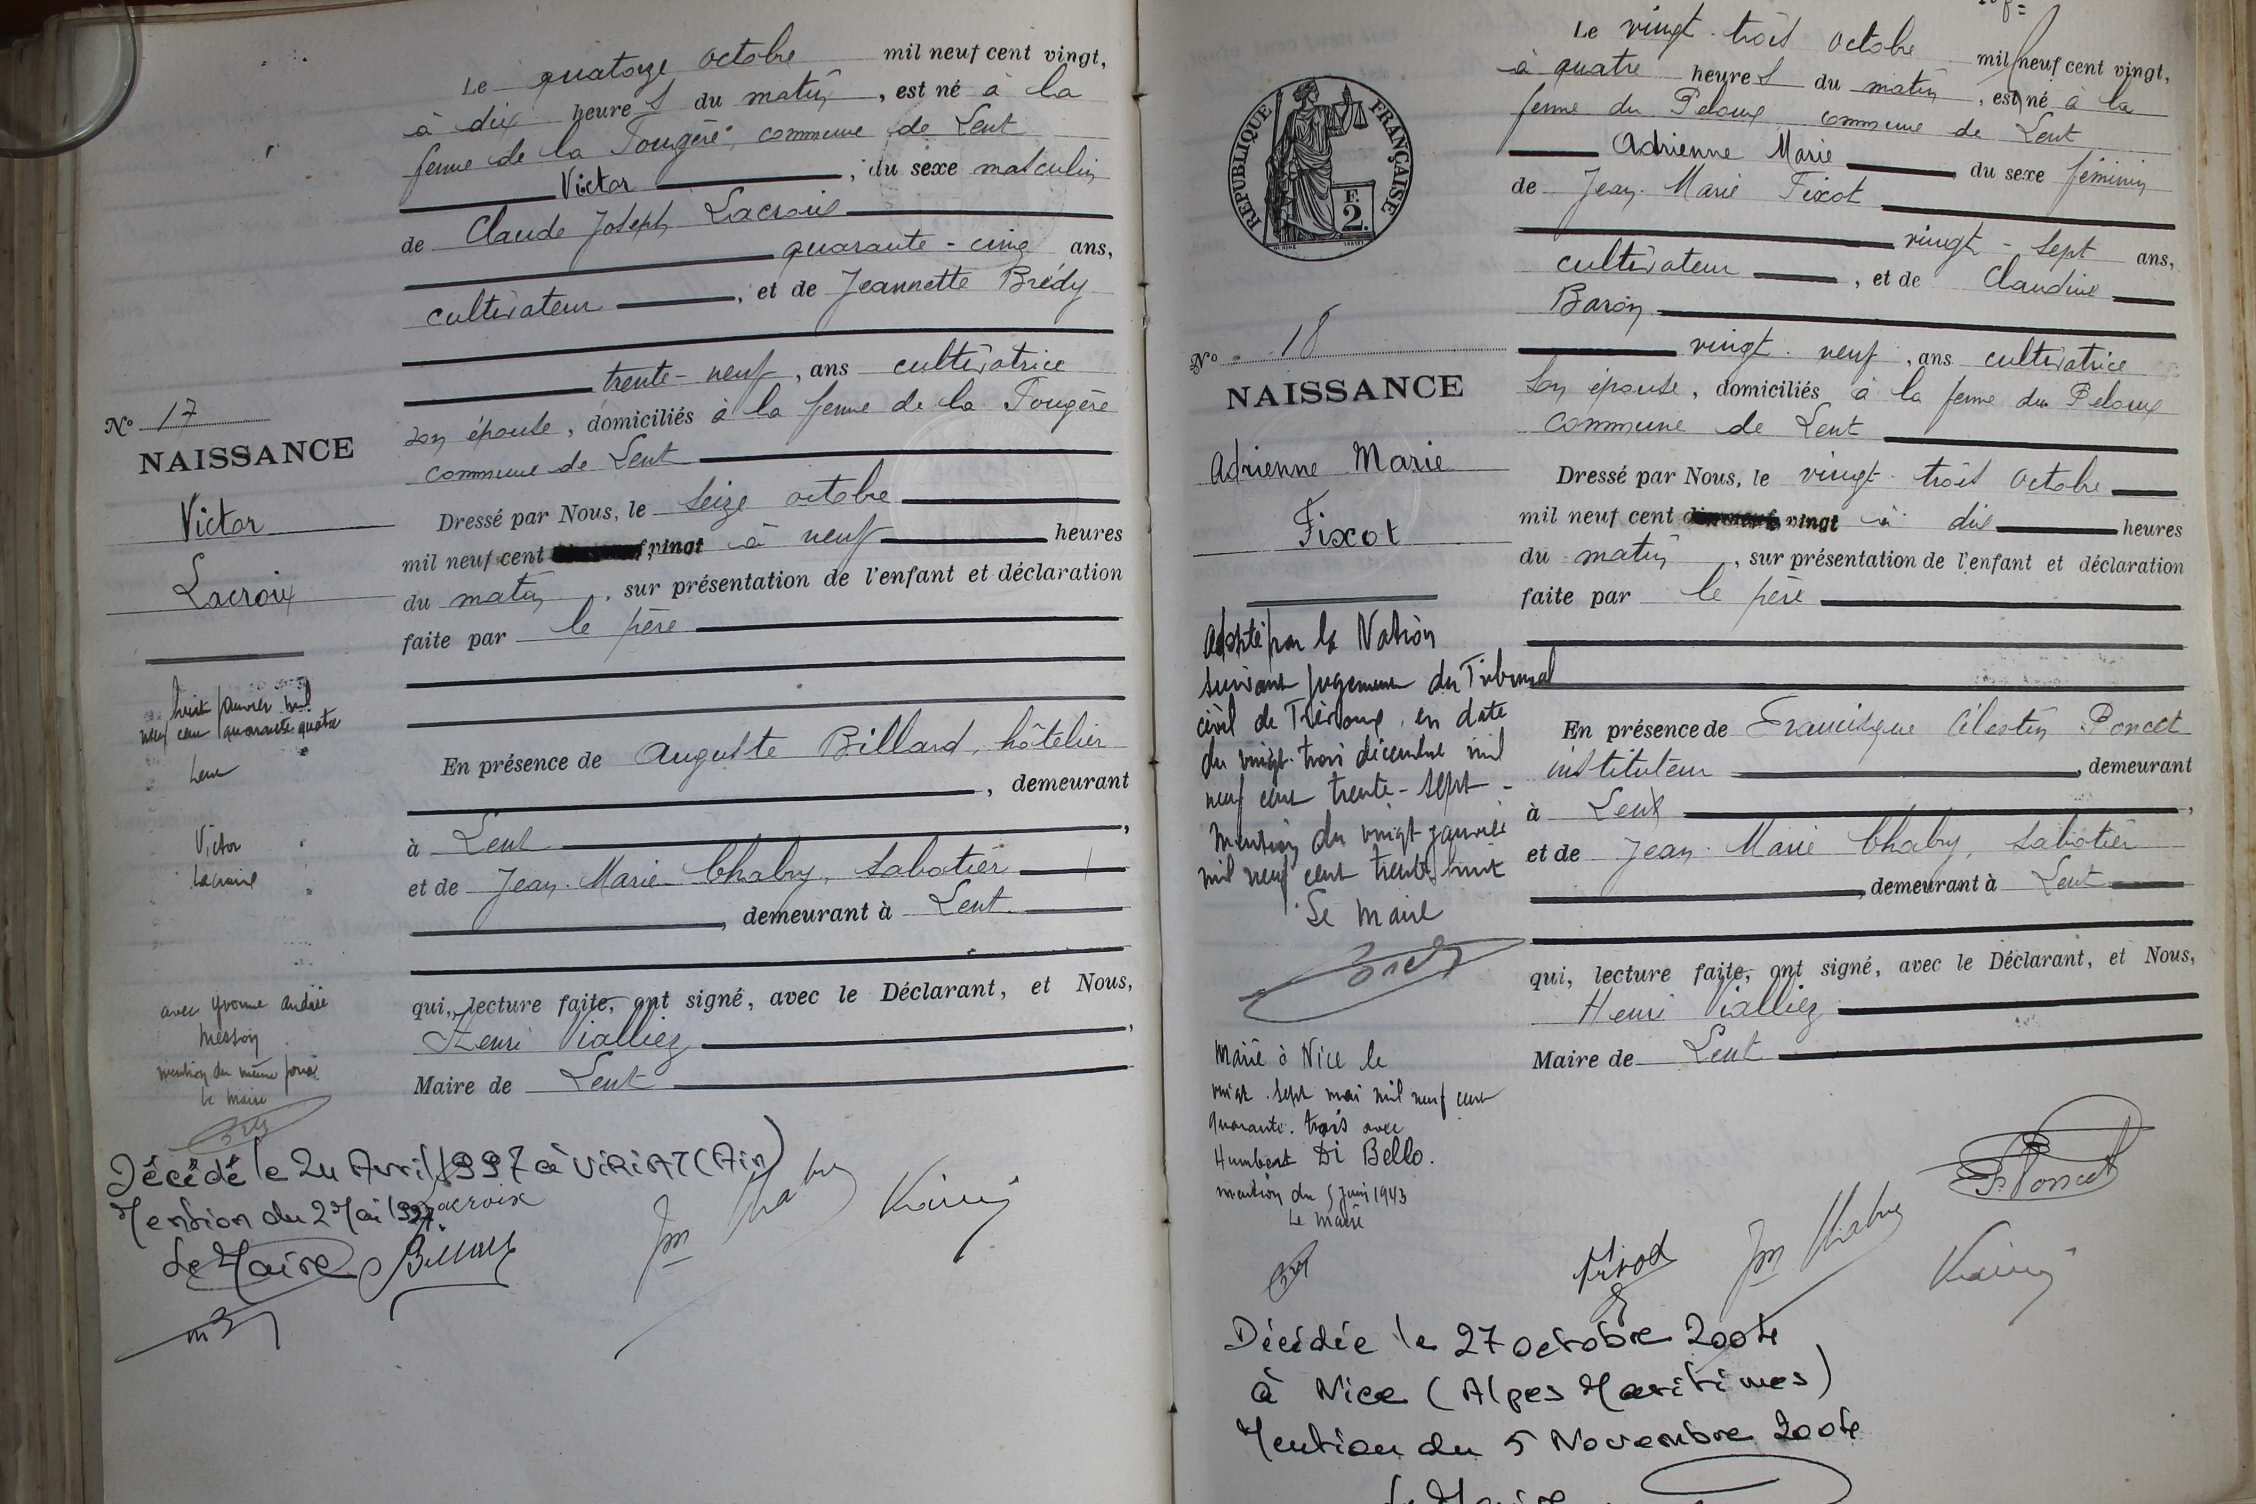 Le quatorze octobre mil neuf cent vingt,
à dix heures du matin, est né à la
ferme de la Fougère, commune de Lent
Victor, du sexe masculin
de Claude Joseph Lacroix
quarante-cinq ans,
cultivateur, et de Jeannette Brédy
trente-neuf, ans cultivatrice
son épouse, domiciliés à la ferme de la Fougère
commune de Lent
Dressé par Nous, le seize octobre
mil neuf cent vingt à neuf heures
du matin, sur présentation de l'enfant et déclaration
faite par le père
En présence de Auguste Billard, hôtelier
, demeurant
à Lent,
et de Jean-Marie Chabry, sabotier
, demeurant à Lent
qui, lecture faite, ont signé, avec le Déclarant, et Nous,
Henri Vialliez,
Maire de Lent
No 17
NAISSANCE
Victor
Lacroix
huit janvier mil
neuf cent quarante quatre
Lent
Victor
Lacroix
avec Yvonne Andrée
Messon
mention du même jour
Le Maire
Décédé le 24 Avril 1997 à VIRIAT (Ain)
Mention du 2 Mai 1997.
Le Maire
Lacroix
Billard
Jm Chabry
Le vingt-trois octobre mil neuf cent vingt,
à quatre heures du matin, est né à la
ferme du Peloux commune de Lent
Adrienne Marie du sexe féminin
de Jean-Marie Fixot
vingt-sept ans,
cultivateur, et de Claudine
Baron
vingt-neuf, ans cultivatrice
son épouse, domiciliés à la ferme du Peloux
commune de Lent
Dressé par Nous, le vingt-trois octobre
mil neuf cent vingt à dix heures
du matin, sur présentation de l'enfant et déclaration
faite par le père
En présence de Francisque Célestin Poncet
instituteur, demeurant
à Lent,
et de Jean-Marie Chabry, sabotier
, demeurant à Lent
qui, lecture faite, ont signé, avec le Déclarant, et Nous,
Henri Vialliez
Maire de Lent
REPUBLIQUE FRANÇAISE
F.
2.
No 18
NAISSANCE
Adrienne Marie
Fixot
Adopté par la Nation
suivant jugement du Tribunal
civil de Trévoux, en date
du vingt-trois décembre mil
neuf cent trente-sept-
Mention du vingt janvier
mil neuf cent trente huit
Le Maire
Marié à Nice le
vingt-sept mai mil neuf cent
quarante-trois avec
Humbert Di Bello.
mention du 5 juin 1943
Le Maire
Poncet
Jm Chabry
Décédée le 27 octobre 2004
à Nice (Alpes Maritimes)
Mention du 5 Novembre 2004
Le Maire